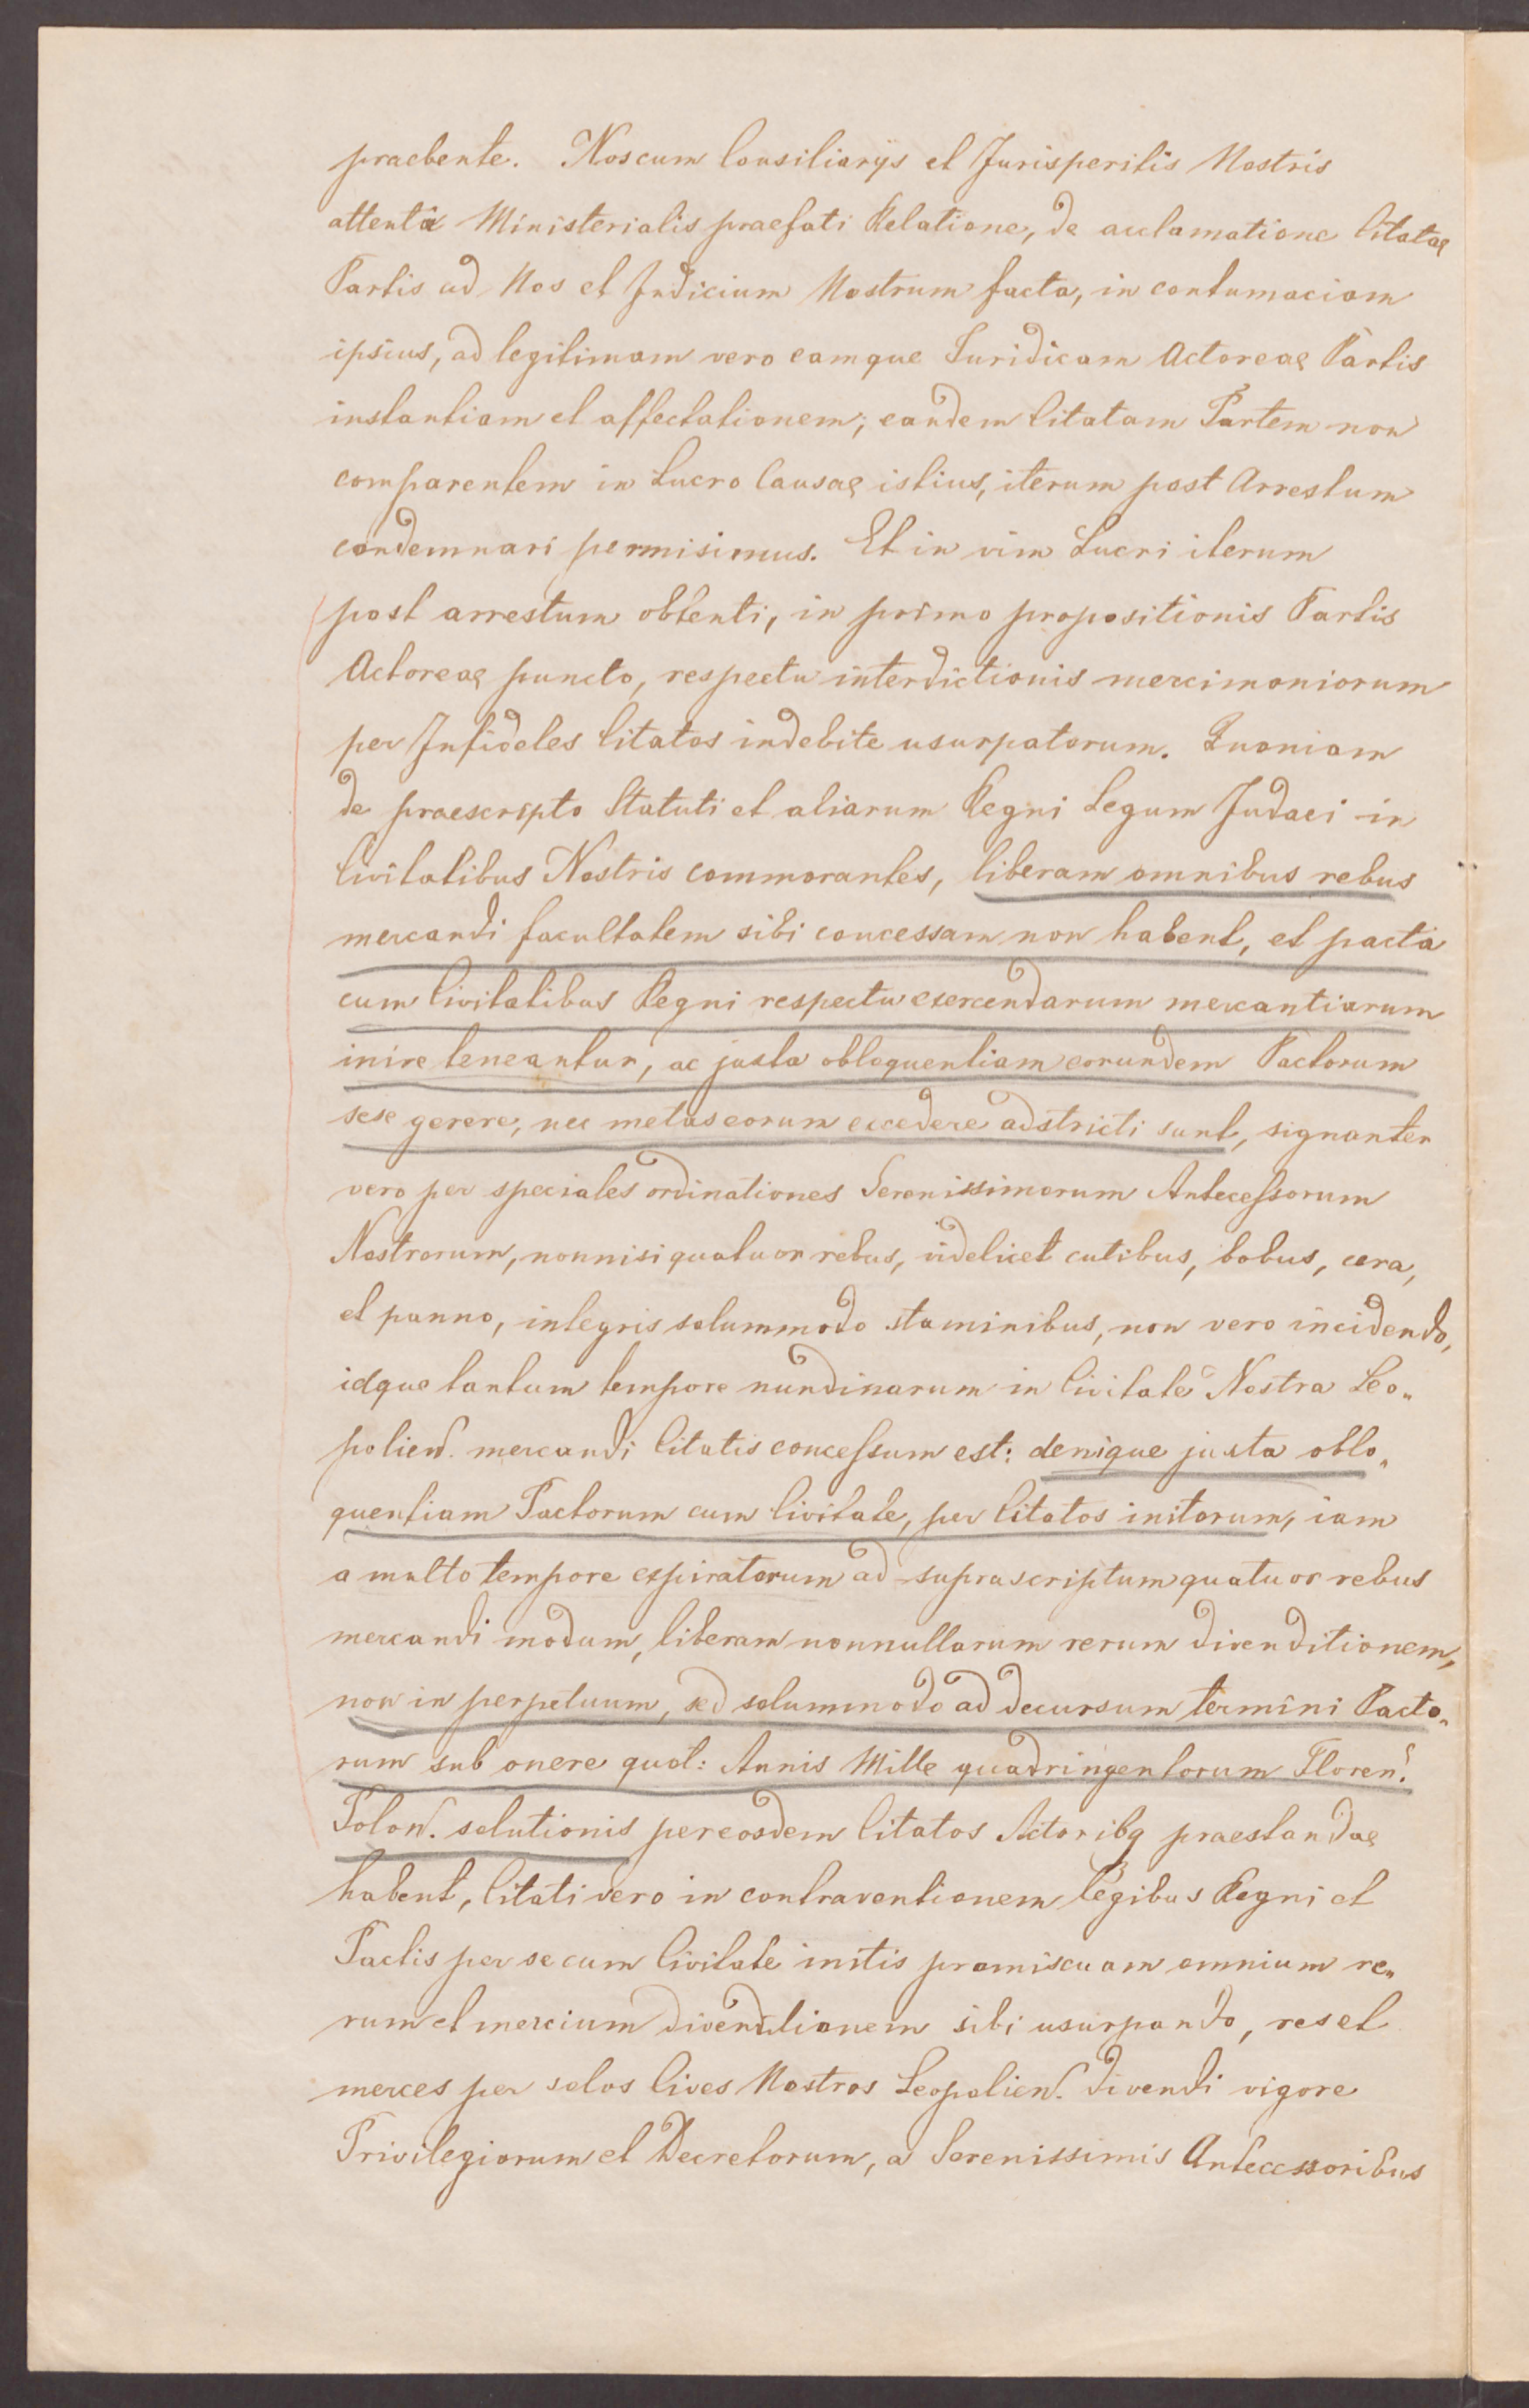 praebente. Nos cum Consiliarijs et Jurisperitis Nostris
attenta Ministerialis praefati Relatione, de acclamatione Citatae
Partis ad Nos et Judicium Nostrum facta, in contumaciam
ipsius, ad legitimam vero eamque Juridicam Actoreae Partis
instantiam et affectationem; eandem Citatam Partem non
comparentem in Lucro Causae istius, iterum post Arrestum
condemnari permisimus. Et in vim Lucri iterum
post arrestum obtenti, in primo propositionis Partis
Actoreae puncto, respectu interdictionis mercimoniorum
per Infideles Citatos indebite usurpatorum. Quoniam
de praescripto Statuti et aliarum Regni Legum Judaei in
Civitatibus Nostris commorantes, liberam omnibus rebus
mercandi facultatem sibi concessam non habent, et pacta
cum Civitatibus Regni respectu exercendarum mercantiarum
inire teneantur, ac juxta obloquentiam eorundem Pactorum
sese gerere, nec metas eorum excedere adstricti sunt, signanter
vero per speciales ordinationes Serenissimorum Antecessorum
Nostrorum, nonnisi quatuor rebus, videlicet cutibus, bobus, cera,
et panno, integris solummodo staminibus, non vero incidendo,
idque tantum tempore nundinarum in Civitate Nostra Leo„
polien. mercandi Citatis concessum est: denique juxta oblo„
quentiam Pactorum cum Civitate, per Citatos initorum, iam
a multo tempore expiratorum ad suprascriptum quatuor rebus
mercandi modum, liberam nonnullarum rerum divenditionem,
non in perpetuum, sed solummodo ad decursum termini Pacto„
rum sub onere quot: Annis Mille quadringentorum Floren.
Polon. solutionis per eosdem Citatos Actoribq praestandae
habent, Citati vero in contraventionem Legibus Regni et
Pactis per se cum Civitate initis promiscuam omnium re„
rum et mercium divenditionem sibi usurpando, res et
merces per solos Cives Nostros Leopolien. divendi vigore
Privilegiorum et Decretorum, a Serenissimis Antecessoribus